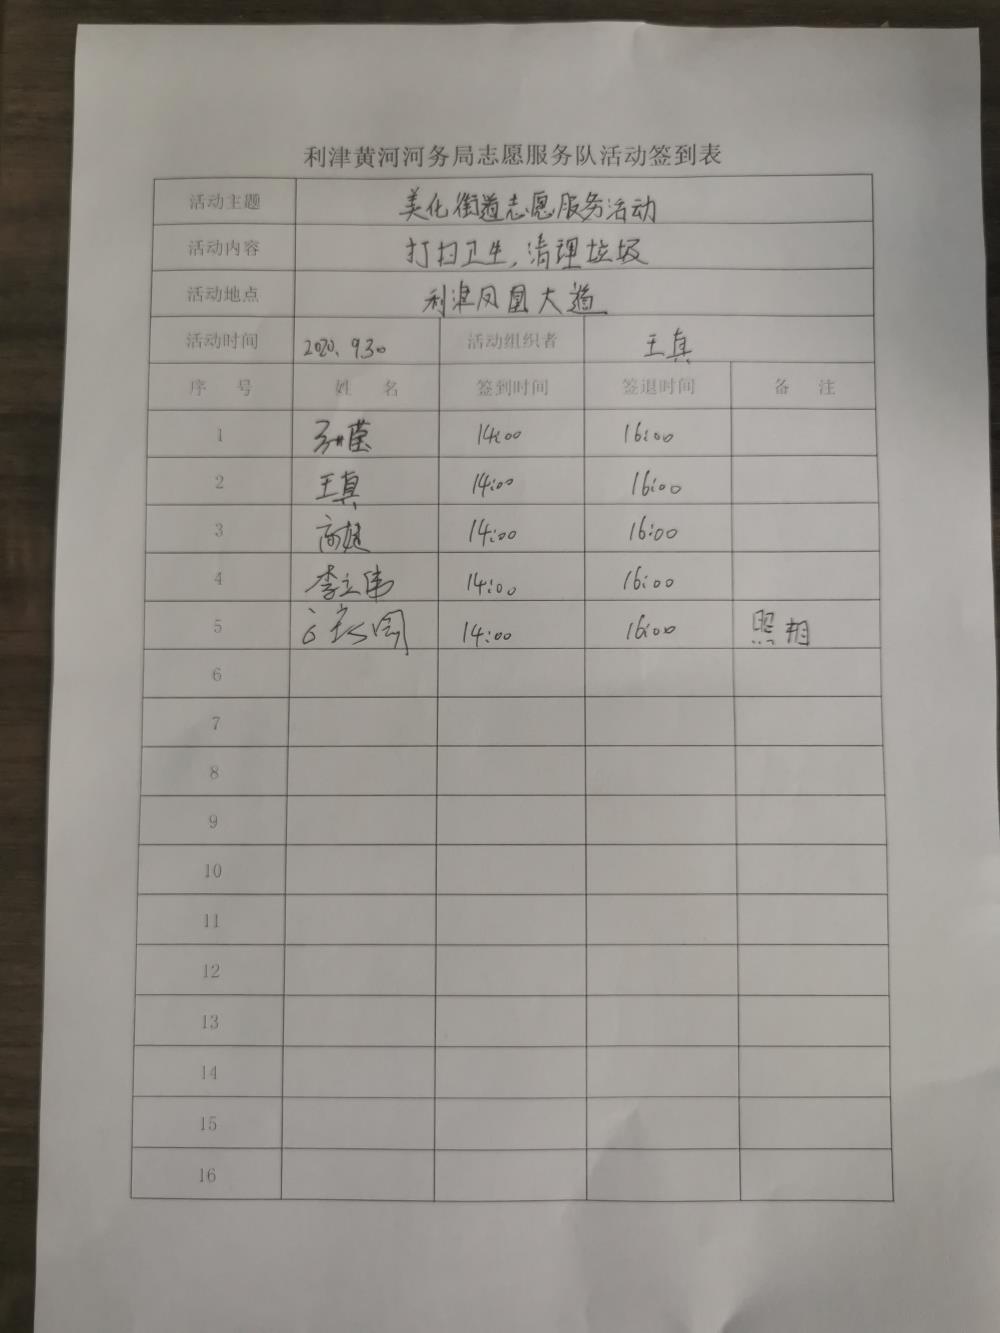 利津黄河河务局志愿服务队活动签到表
活动主题 美化街道志愿服务活动
活动内容 打扫卫生,清理垃圾
活动地点 利津凤凰大道
活动时间 2020.9.30 活动组织者 王真
序 号 姓 名 签到时间 签退时间 备 注
1 14:00 16:00
2 王真 14:00 16:00
3 高婕 14:00 16:00
4 李立伟 14:00 16:00
5 14:00 16:00 照相
6
7
8
9
10
11
12
13
14
15
16